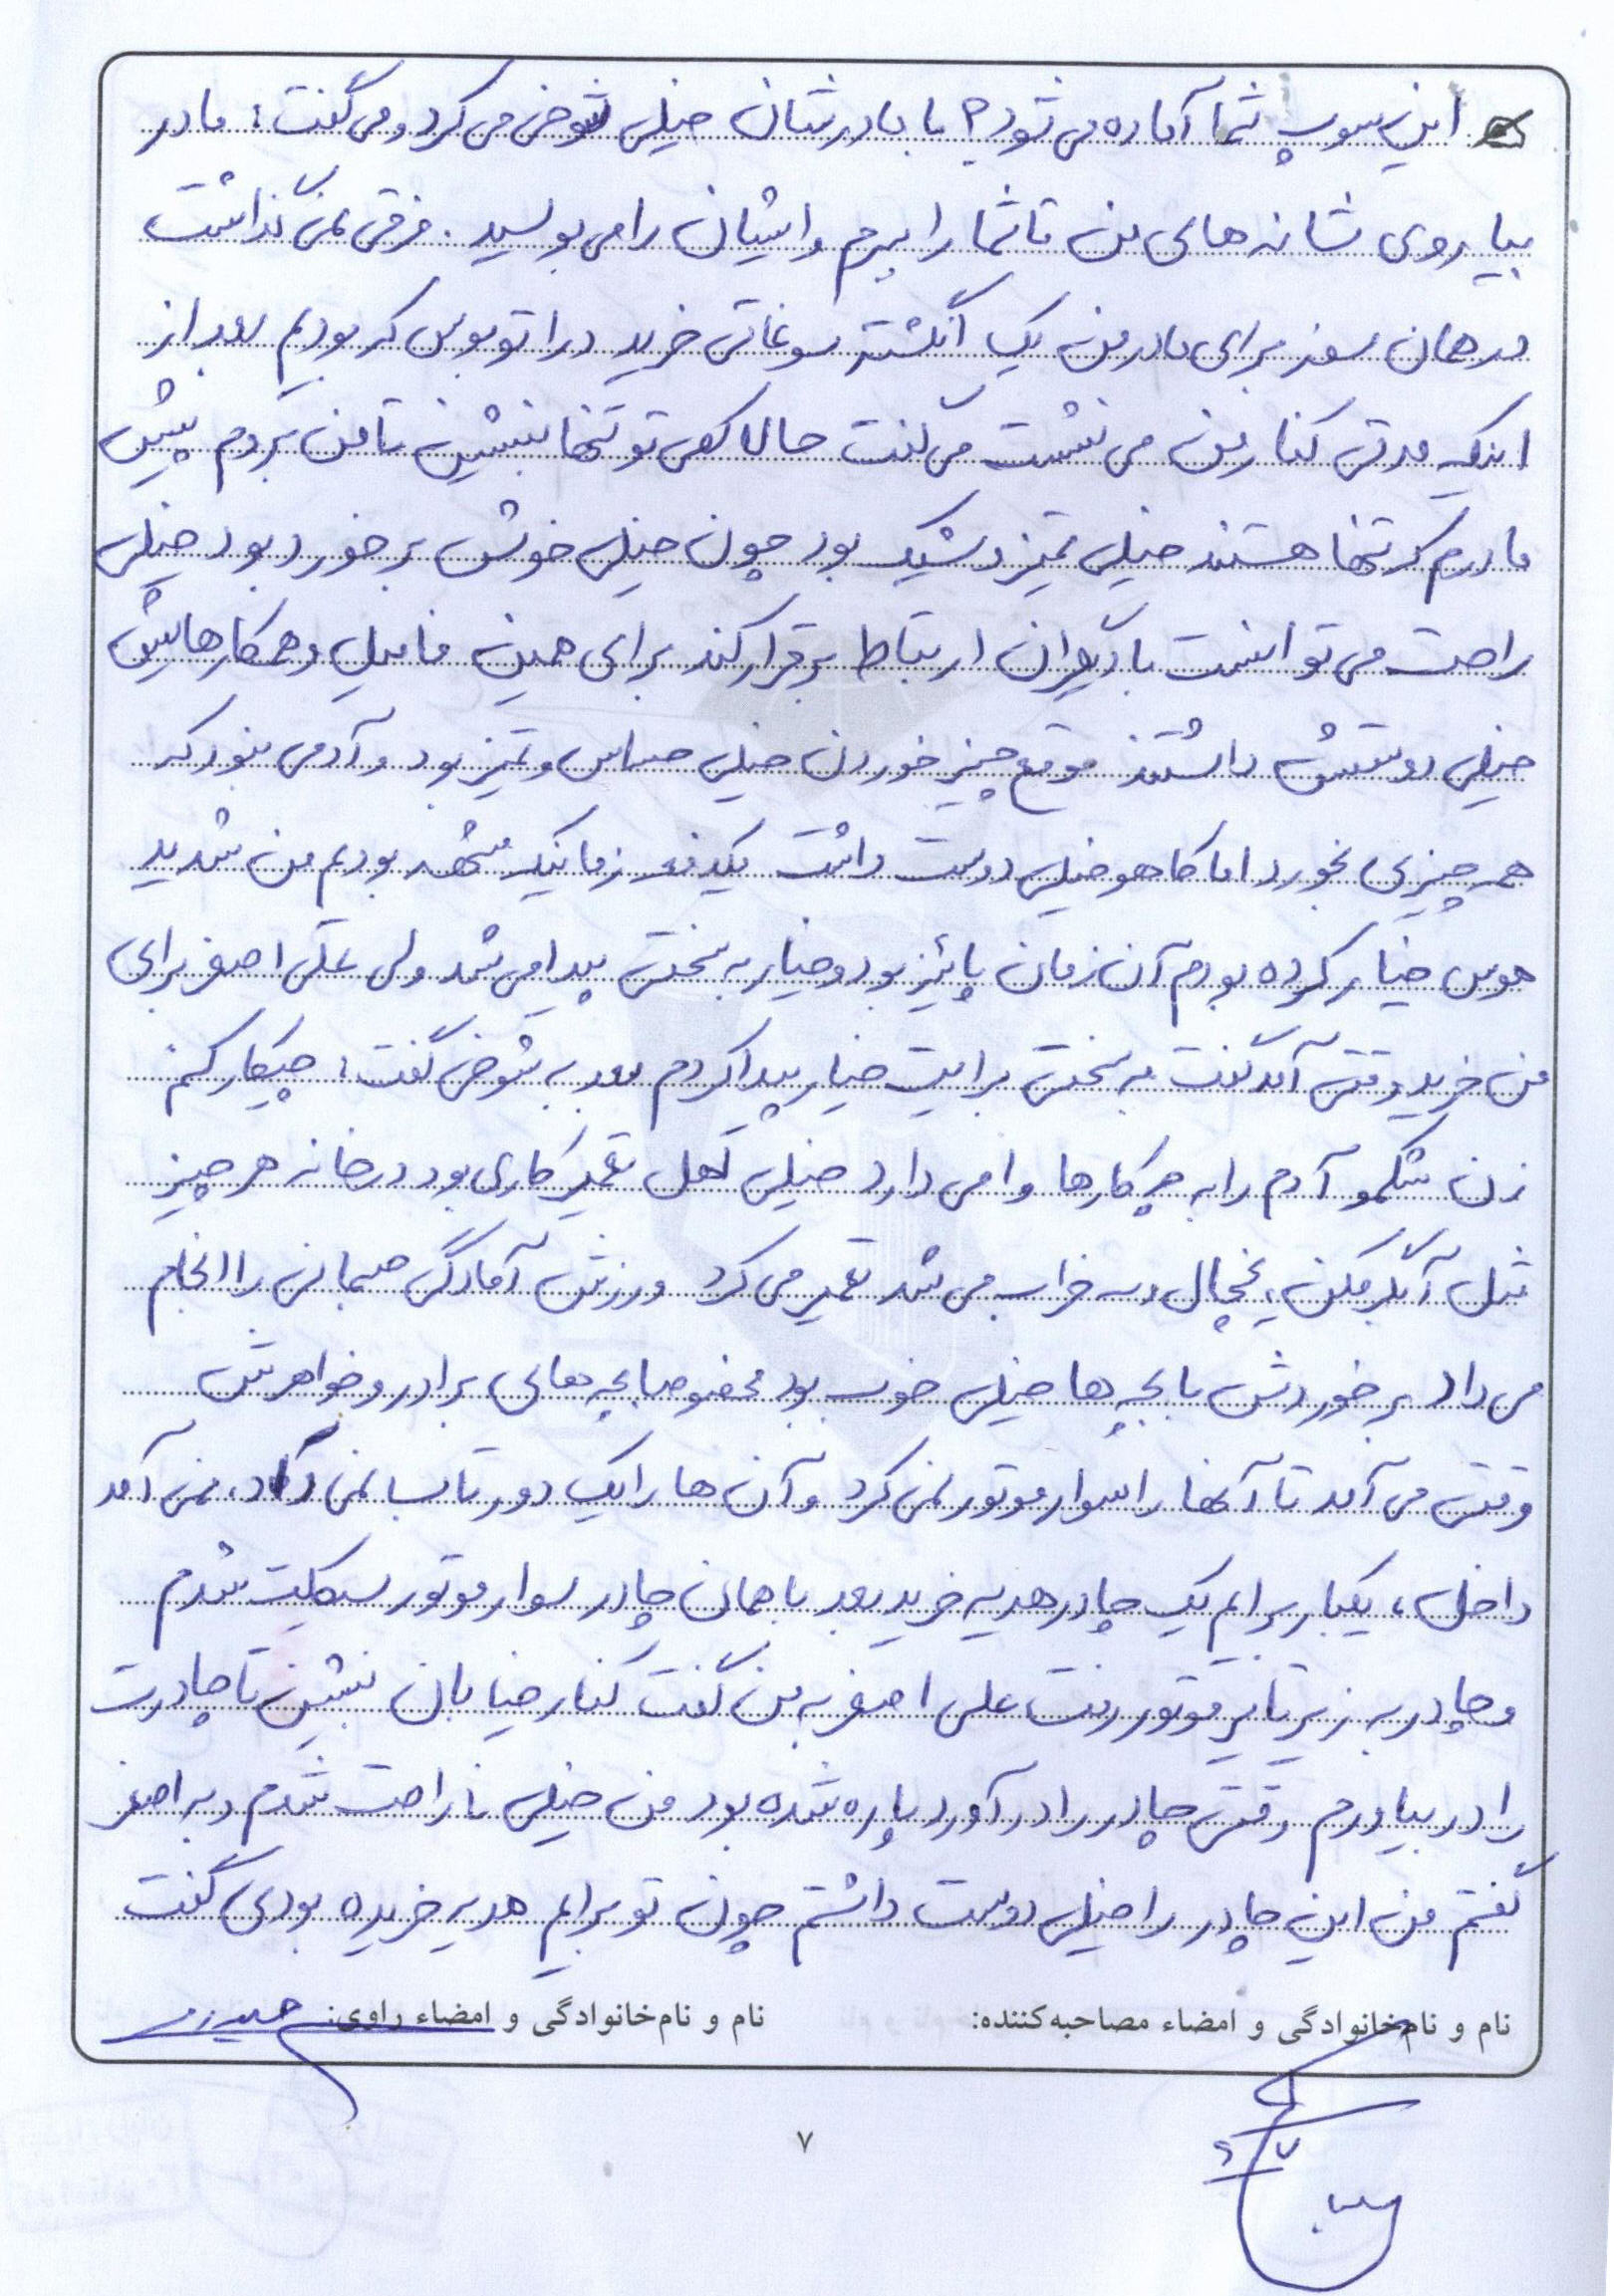 این سوپ شما آماده می شود؟ با مادرشان خیلی شوخی می کرد و می گفت: مادر
بیا روی شانه های من تا شما را ببرم و ایشان را می بوسید. فرقی نمی گذاشت
در همان سفر برای مادر من یک انگشتر سوغاتی خرید در اتوبوس که بودیم بعد از
اینکه مدتی کنار من می نشست می گفت حالا کمی تو تنها بنشین تا من بروم پیش
مادرم که تنها هستند خیلی تمیز و شیک بود چون خیلی خوش برخورد بود خیلی
راحت می توانست با دیگران ارتباط برقرار کند برای همین فامیل و همکارهایش
خیلی دوستش داشتند موقع چیز خوردن خیلی حساس و تمیز بود و آدمی نبود که
همه چیزی بخورد اما کاهو خیلی دوست داشت یکدفعه زمانیکه مشهد بودیم من شدید
هوس خیار کرده بودم آن زمان پائیز بود و خیار به سختی پیدا می شد ولی علی اصغر برای
من خرید وقتی آمد گفت به سختی برایت خیار پیدا کردم بعد به شوخی گفت: چیکار کنم
زن شکمو آدم را به چه کارها وا می دارد خیلی اهل تعمیر کاری بود در خانه هر چیز
مثل آبگرمکن، یخچال و... خراب می شد تعمیر می کرد ورزش آمادگی جسمانی را انجام
می داد برخوردش با بچه ها خیلی خوب بود مخصوصا بچه های برادر و خواهرش
وقتی می آمد تا آنها را سوار موتور نمی کرد و آن ها را یک دور تاب نمی داد، نمی آمد
داخل، یکبار برایم یک چادر هدیه خرید بعد با همان چادر سوار موتور سیکلت شدم
و چادر به زیر تایر موتور رفت علی اصغر به من گفت کنار خیابان بنشین تا چادرت
را در بیاورم وقتی چادر را در آورد پاره شده بود من خیلی ناراحت شدم و به اصغر
گفتم من این چادر را خیلی دوست داشتم چون تو برایم هدیه خریده بودی گفت
نام و نام‌خانوادگی و امضاء مصاحبه‌کننده: نام و نام‌خانوادگی و امضاء راوی:
۷